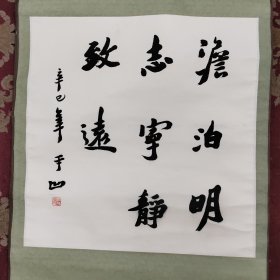 澹泊明
志寧靜
致遠
辛巳年平凹